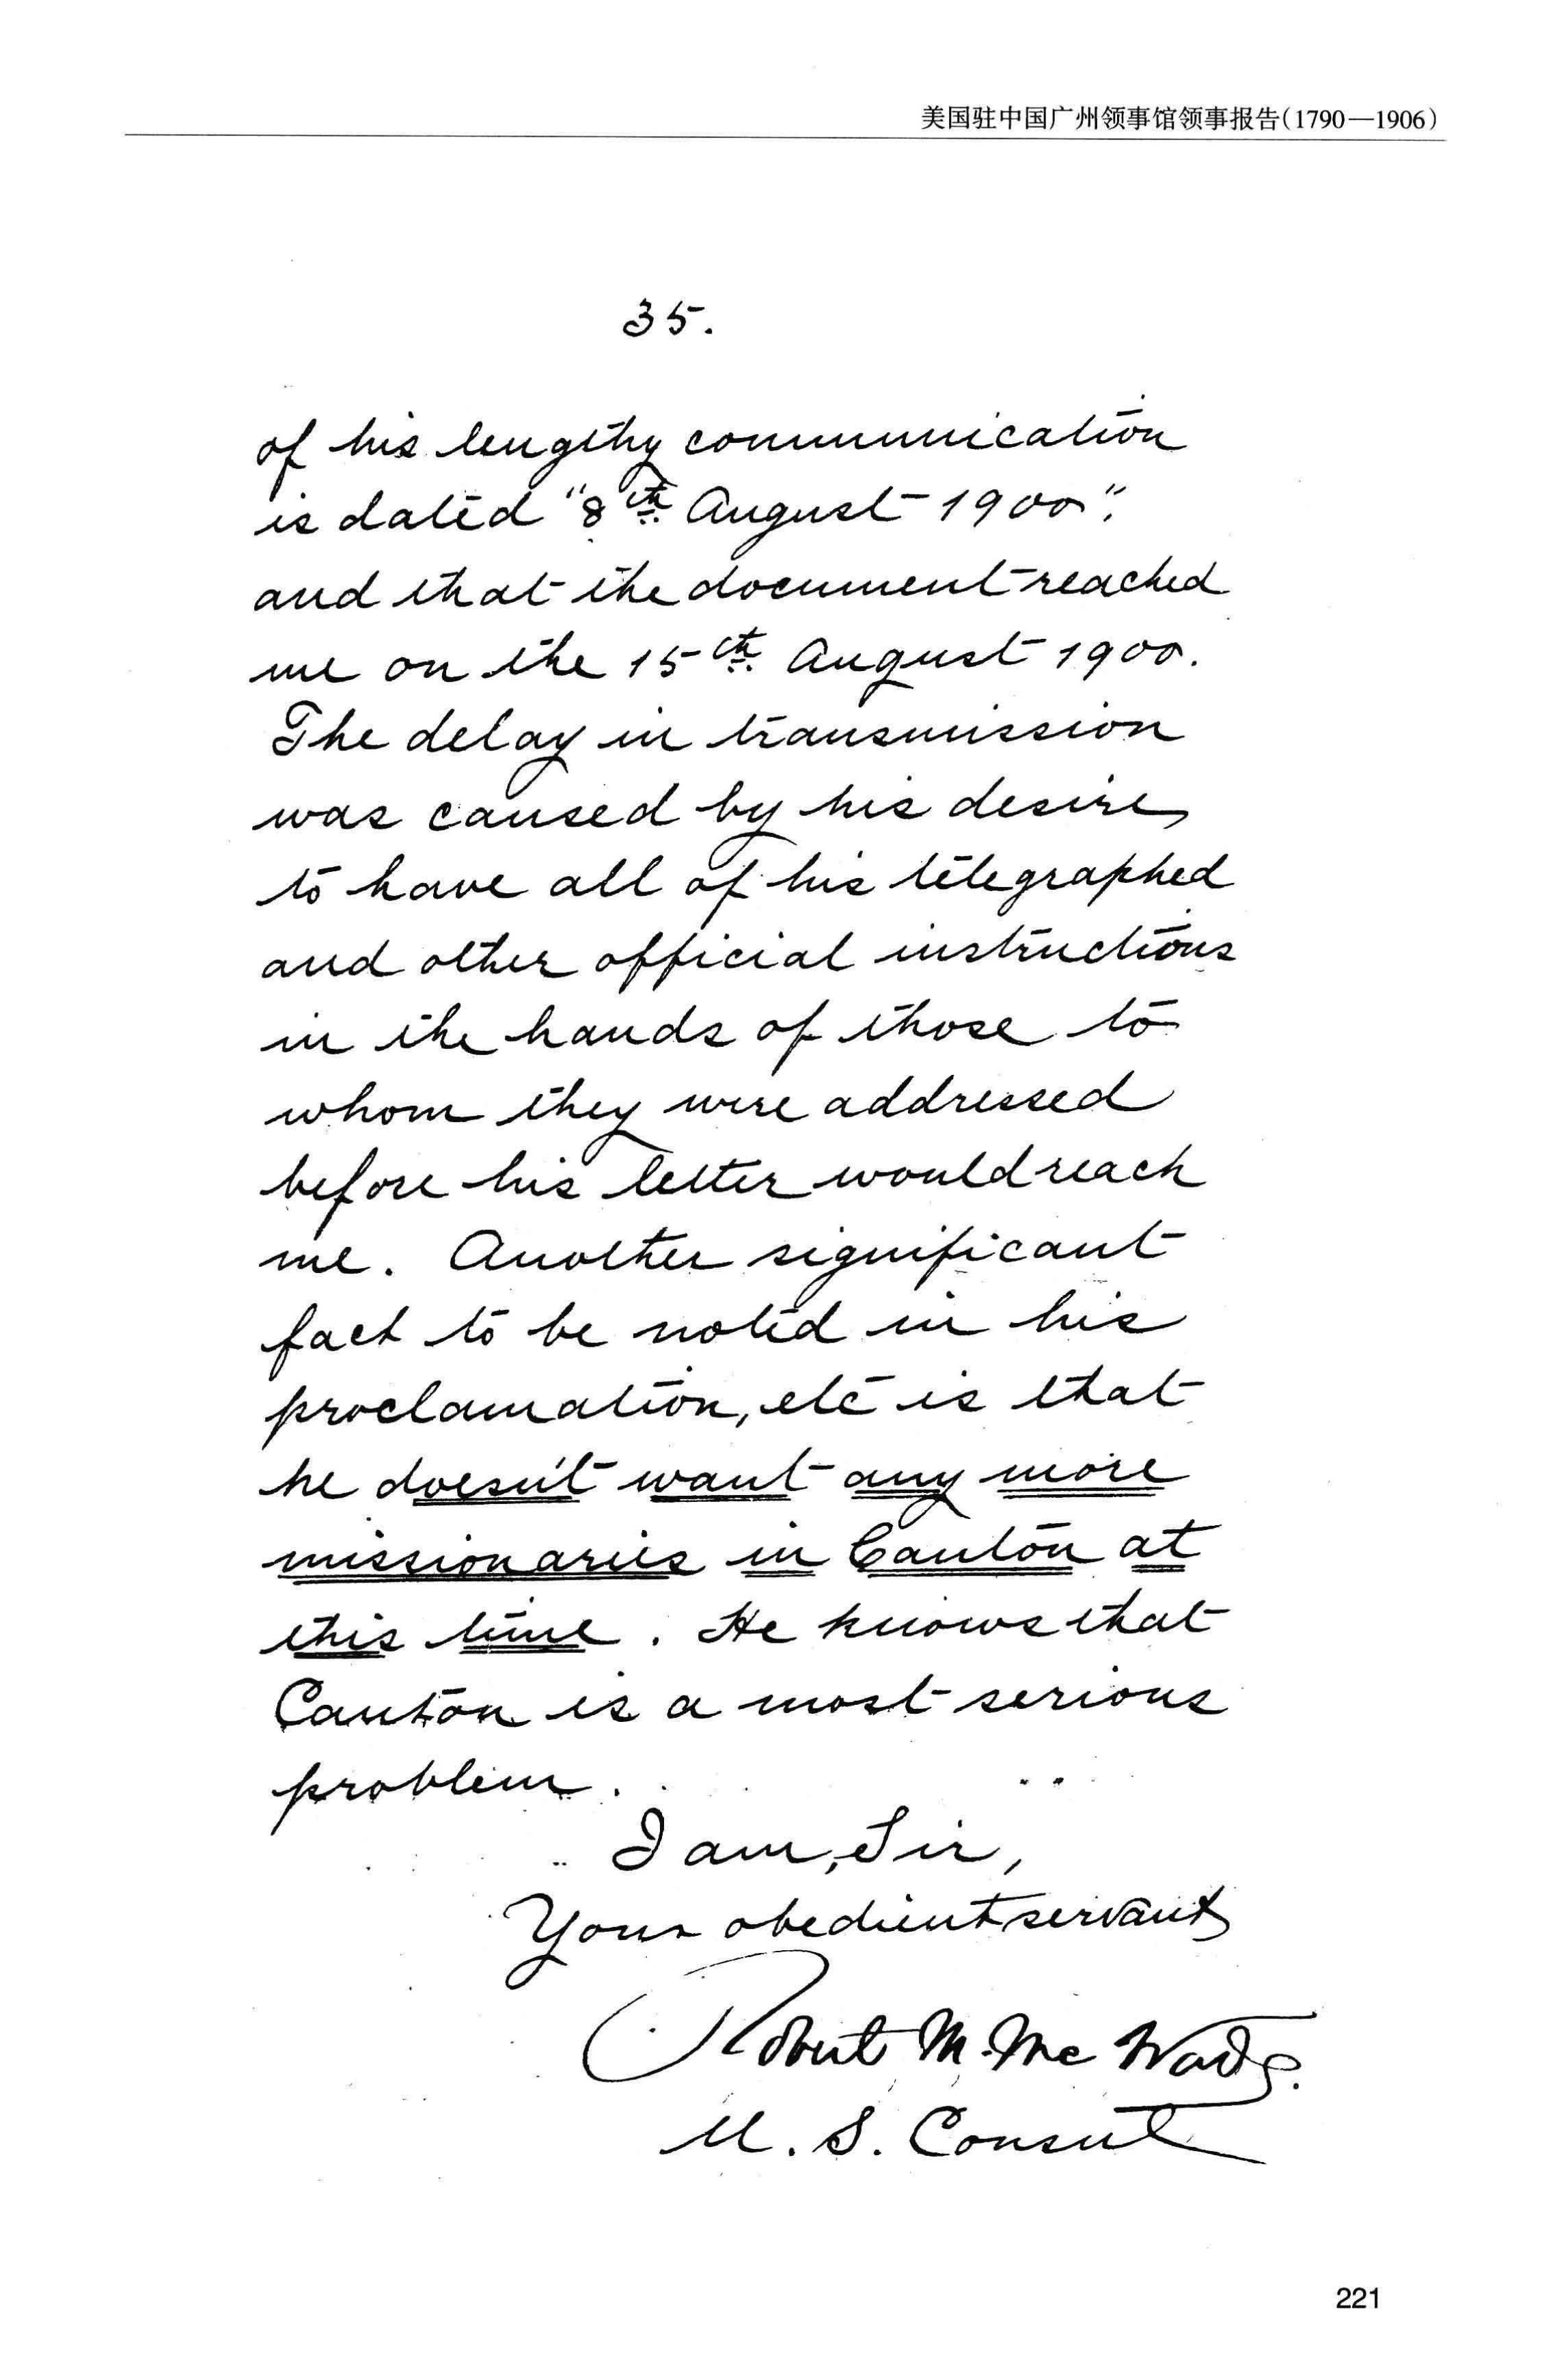 美国驻中国广州领事馆领事报告(1790—1906)
35.
of his lengthy communication
is dated "8th August 1900",
and that the document reached
me on the 15th August 1900.
The delay in transmission
was caused by his desire
to have all of his telegraphed
and other official instructions
in the hands of those to
whom they were addressed
before his letter would reach
me. Another significant
fact to be noted in his
proclamation, etc is that
he doesn't want any more
missionaries in Canton at
this time. He knows that
Canton is a most serious
problem.
I am, Sir,
Your obedient servant
Robert M. McWade.
U. S. Consul
221